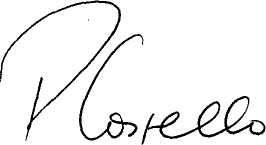 P Costello